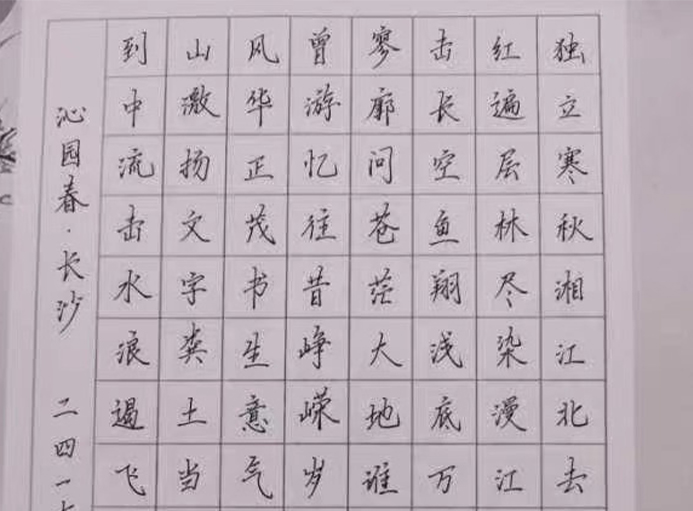 独立寒秋湘江北去
红遍层林尽染漫江
击长空鱼翔浅底万
寥廓问苍茫大地谁
曾游忆往昔峥嵘岁
风华正茂书生意气
山激扬文字粪土当
到中流击水浪遏飞
沁园春·长沙 二四一七